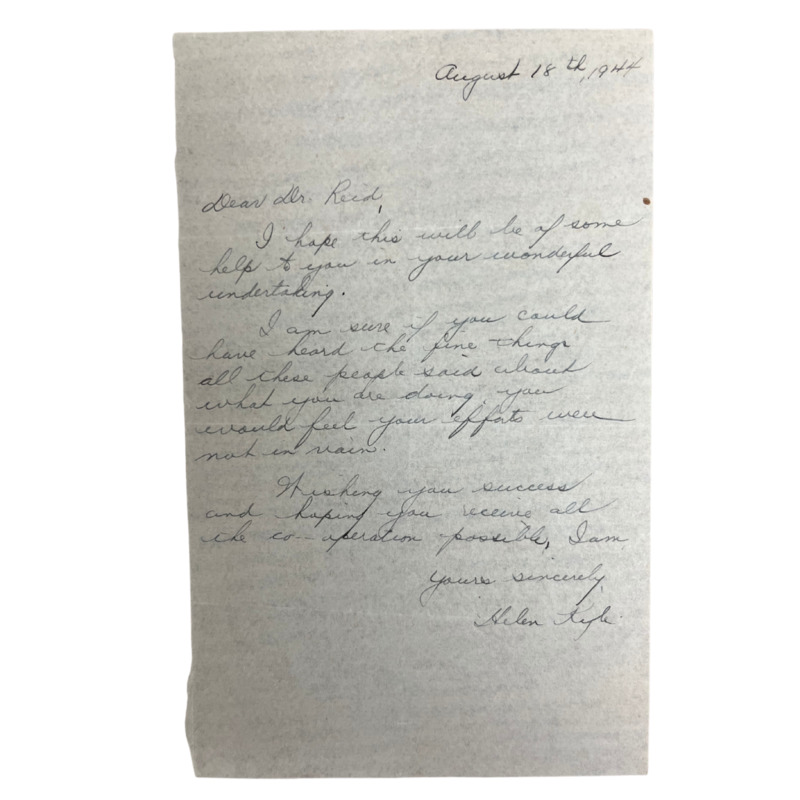 August 18th, 1944
Dear Dr. Reid,
I hope this will be of some
help to you in your wonderful
undertaking.
I am sure if you could
have heard the fine things
all these people said about
what you are doing, you
would feel your efforts were
not in vain.
Wishing you success
and hoping you receive all
the co-operation possible, I am
yours sincerely,
Helen Kyle.